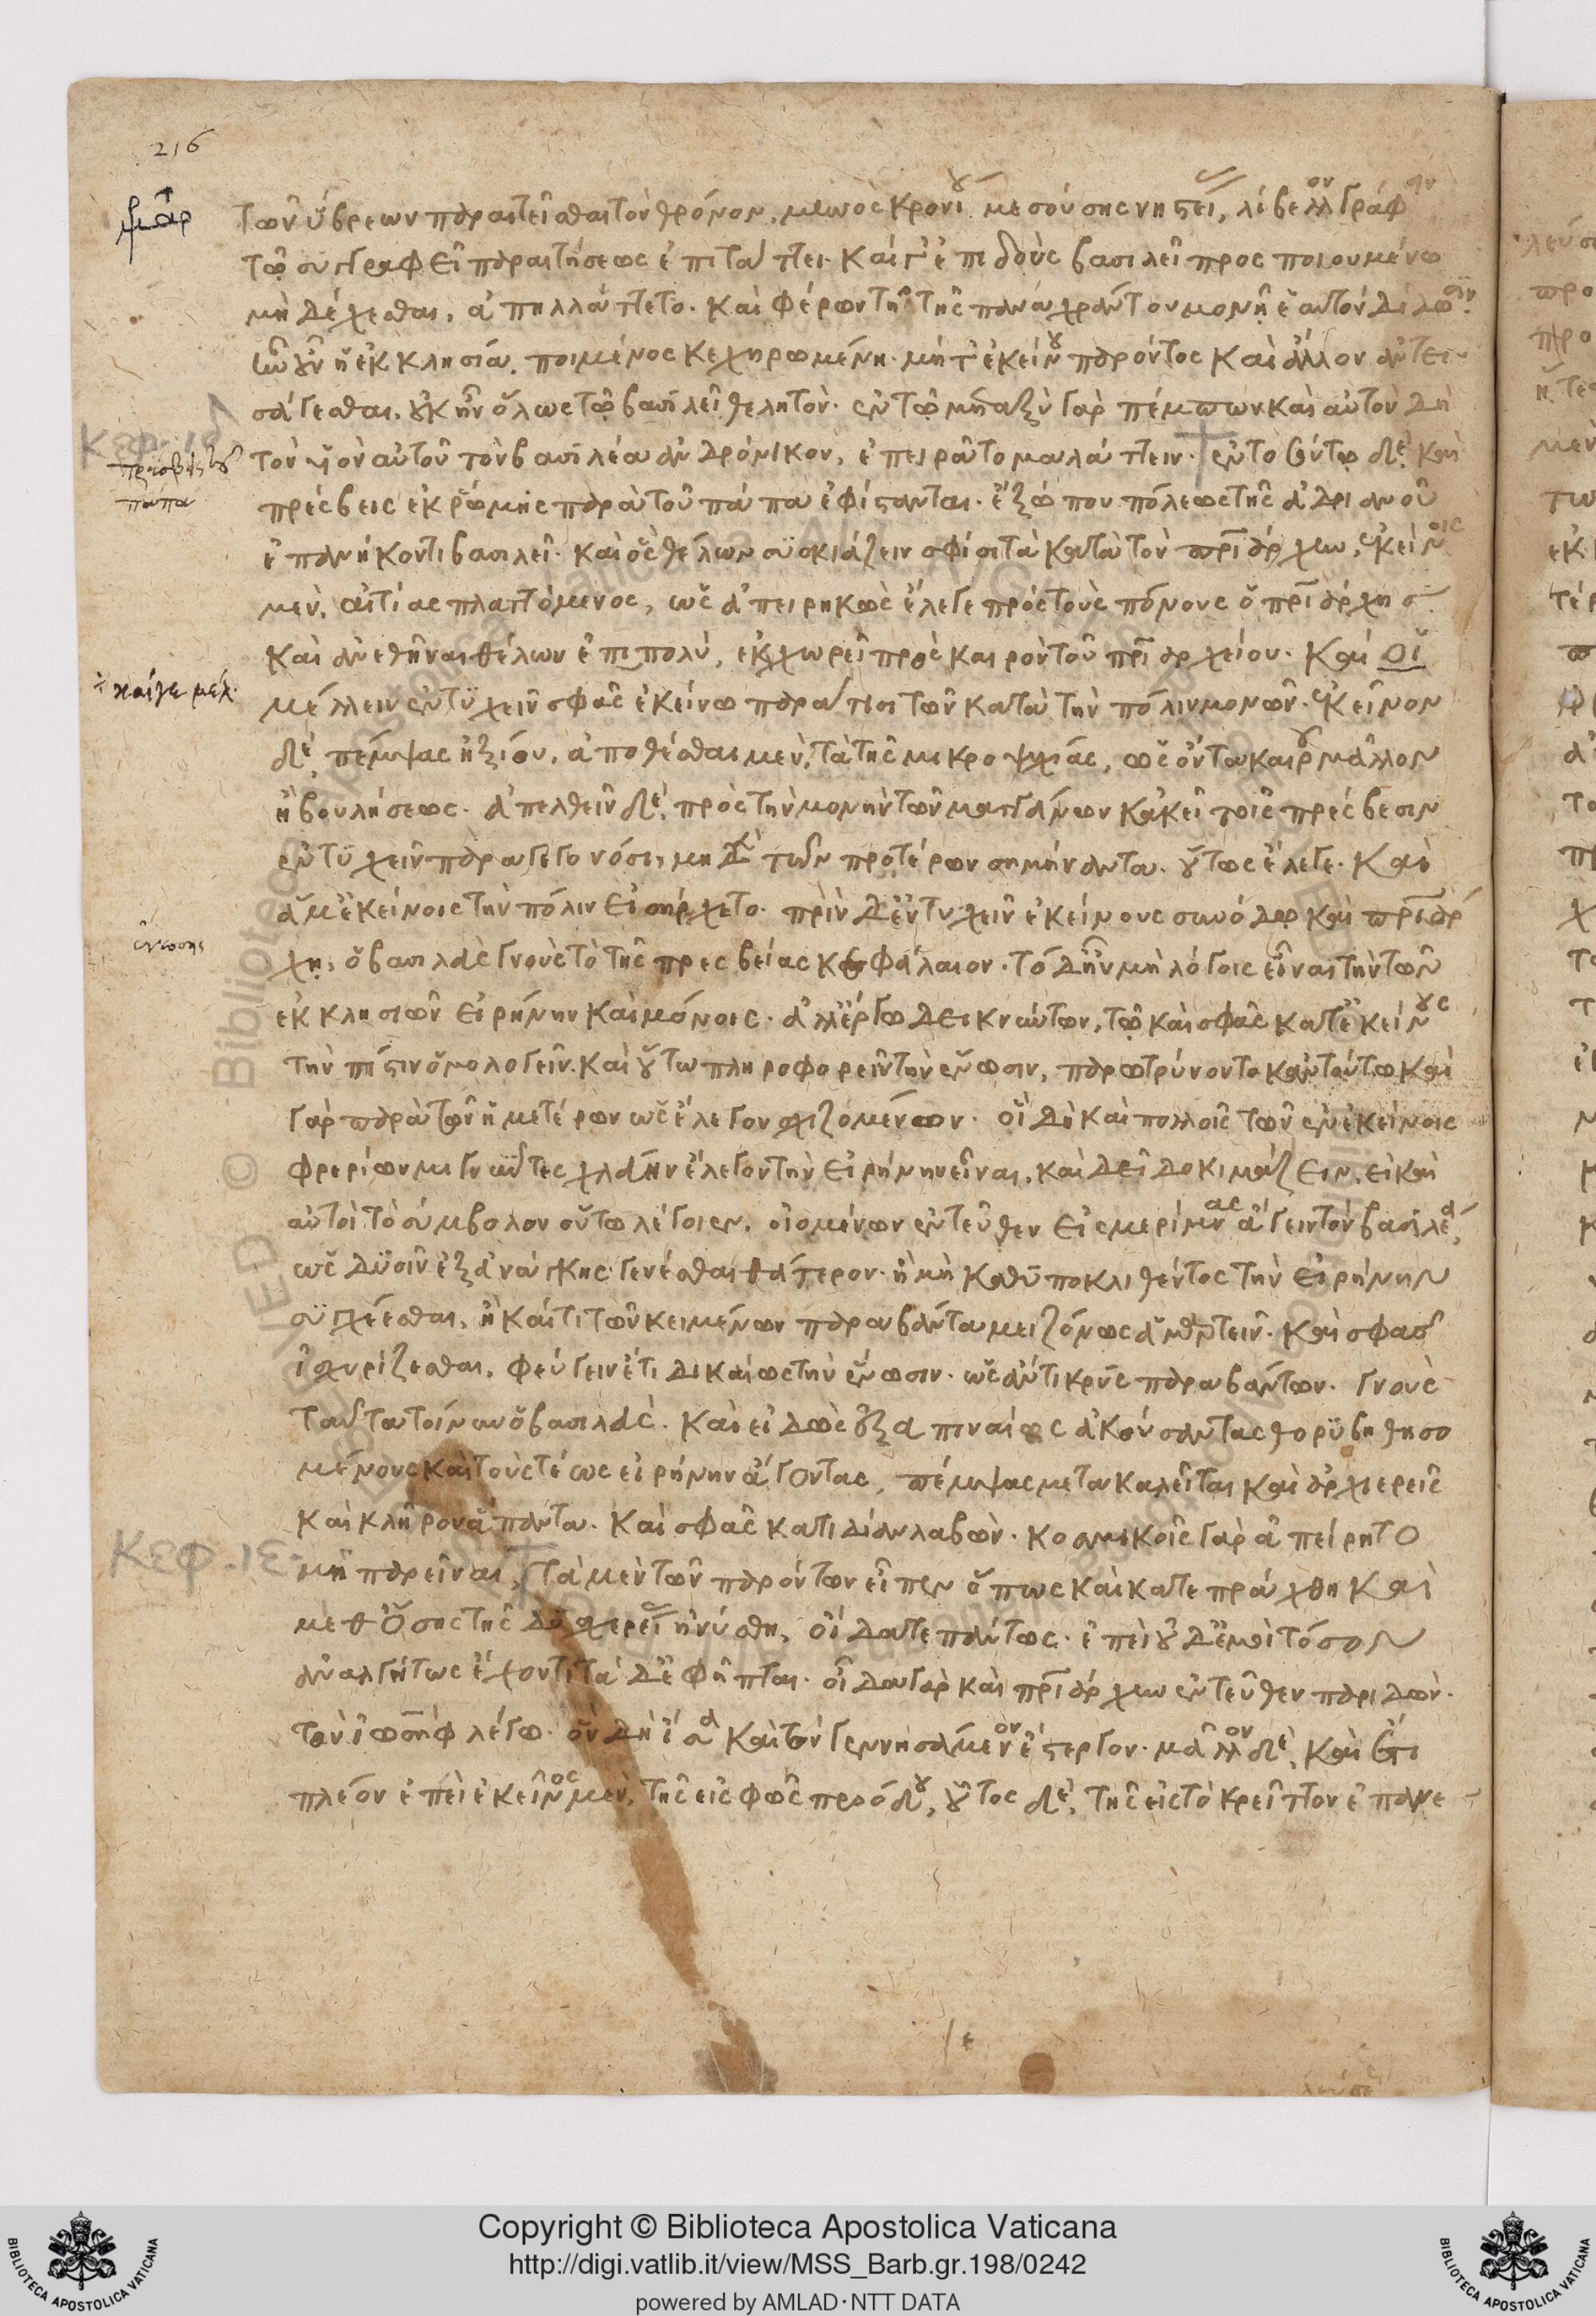 216
τῶν ὕβρεων παραιτεῖσθαι τὸν θρόνον, μηνὸς κρονίου μεσούσης νηστεί, λίβελλον γράφειν
τῷ συγγραφεῖ παραιτήσεως ἐπιτάττει· καί γ' ἐπιδοὺς βασιλεῖ προσποιουμένω
μὴ δέχεσθαι, ἀπηλλάττετο. καὶ φέρων τῇ τῆς παναχράντου μονῇ ἑαυτὸν δίδωσιν.
ἦν οὖν ἡ ἐκκλησία, ποιμένος κεχηρωμένη. μήτ' ἐκείνου παρόντος καὶ ἄλλον ἀντει
σάγεσθαι, οὐκ ἦν ὅλως τῷ βασιλεῖ θελητόν. ἐν τῷ μεταξὺ γὰρ πέμπων καὶ αὐτὸν δὴ
Κεφ. ιδ
τὸν υἱὸν αὐτοῦ τὸν βασιλέα ἀνδρόνικον, ἐπειρᾶτο μαλάττειν. ἐν τοσούτω δὲ καὶ
πρέσβεις τοῦ
πάπα
πρέσβεις ἐκ ῥώμης παρὰ τοῦ πάπα ἐφίστανται. ἔξω που πόλεως τῆς ἀδριανοῦ
ἐπανήκοντι βασιλεῖ. καὶ ὃς θέλων συσκιάζειν σφίσι τὰ κατὰ τὸν πατριάρχην, ἐκείνοις
μὲν, αἰτίας πλαττόμενος, ὡς ἀπειρηκὼς ἔλεγε πρὸς τοὺς πόνους ὁ πατριάρχης
καὶ ἀνεθῆναι θέλων ἐπιπολύ, ἐκχωρεῖ πρὸς καιρὸν τοῦ πατριαρχείου. καὶ οἷ
καίγε μέλ
μέλλειν ἐντυχεῖν σφᾶς ἐκείνω παρά τισι τῶν κατὰ τὴν πόλιν μονῶν. ἐκεῖνον
δὲ, πέμψας ἠξίου, ἀποθέσθαι μὲν, τὰ τῆς μικροψυχίας, ὡς ὄντα καιροῦ μᾶλλον
ἢ βουλήσεως. ἀπελθεῖν δὲ, πρὸς τὴν μονὴν τῶν μαγγάνων κἀκεῖ τοῖς πρέσβεσιν
ἐντυχεῖν παραγεγονόσι, μηδὲν τῶν προτέρων σημήναντα. οὗτος ἔλεγε. καὶ
ἅμ' ἐκείνοις τὴν πόλιν εἰσήρχετο. πρὶν δ' ἐντυχεῖν ἐκείνους συνόδω καὶ πατριάρ
ἕνωσης
χῃ, ὁ βασιλεὺς γνοὺς τὸ τῆς πρεσβείας κεφάλαιον. τὸ δ' ἦν μὴ λόγοις εἶναι τὴν τῶν
ἐκκλησιῶν εἰρήνην καὶ μόνοις. ἀλλ' ἔργω δεικνύντων, τῷ καὶ σφᾶς κατ' ἐκείνους
τὴν πίστιν ὁμολογεῖν. καὶ οὕτω πληροφορεῖν τὴν ἕνωσιν, παρωτρύνοντο κἀν τούτω καὶ
γὰρ παρὰ τῶν ἡμετέρων ὡς ἔλεγον σχιζομένων. οἳ δὴ καὶ πολλοῖς τῶν ἐν ἐκείνοις
φρερίων μιγνύντες χλεύην ἔλεγον τὴν εἰρήνην εἶναι, καὶ δεῖ δοκιμάζειν, εἰ καὶ
αὐτοὶ τὸ σύμβολον οὕτω λέγοιεν. οἰομένων ἐντεῦθεν εἰς μερίμνας ἄγειν τὸν βασιλέα,
ὡς δυσὶν ἐξ ἀνάγκης γενέσθαι θάτερον. ἢ μὴ καθυποκλιθέντος τὴν εἰρήνην
συγχέεσθαι, ἢ καί τι τῶν κειμένων παραβάντα μειζόνως ἁμαρτεῖν. καὶ σφᾶς
ἰσχυρίζεσθαι, φεύγειν ἔτι δικαίως τὴν ἕνωσιν. ὡς ἀντικρὺς παραβάντων. γνοὺς
ταῦτα τοίνυν ὁ βασιλεὺς. καὶ εἰδὼς ἐξαπιναίως ἀκούσαντας θορυβηθησο
μένους καὶ τοὺς τέως εἰρήνην ἄγοντας, πέμψας μετακαλεῖται καὶ ἀρχιερεῖς
καὶ κλῆρον ἅπαντα. καὶ σφᾶς κατιδίαν λαβὼν. κοσμικοῖς γὰρ ἀπείρητο
Κεφ. ιε
μὴ παρεῖναι, τὰ μὲν τῶν παρόντων εἶπεν ὅπως καὶ κατεπράχθη καὶ
μεθ' ὅσης τῆς δυσχερείας ἠνύσθη, οἴδατε πάντως. ἐπεὶ οὐδ' ἐμοὶ τόσον
ἀναλγήτως ἔχοντι τάδ' ἐφῆπται. οἶδα γὰρ καὶ πατριάρχην ἐντεῦθεν παριδών.
τὸν ἰωσὴφ λέγω. ὃν δὴ ἴσα καὶ τὸν γεννησάμενον ἔστεργον. μᾶλλον δὲ, καὶ ἔτι
πλέον ἐπεὶ ἐκεῖνος μὲν, τῆς εἰς φῶς προόδου, οὗτος δὲ, τῆς εἰς τὸ κρεῖττον ἐπανε
ιε